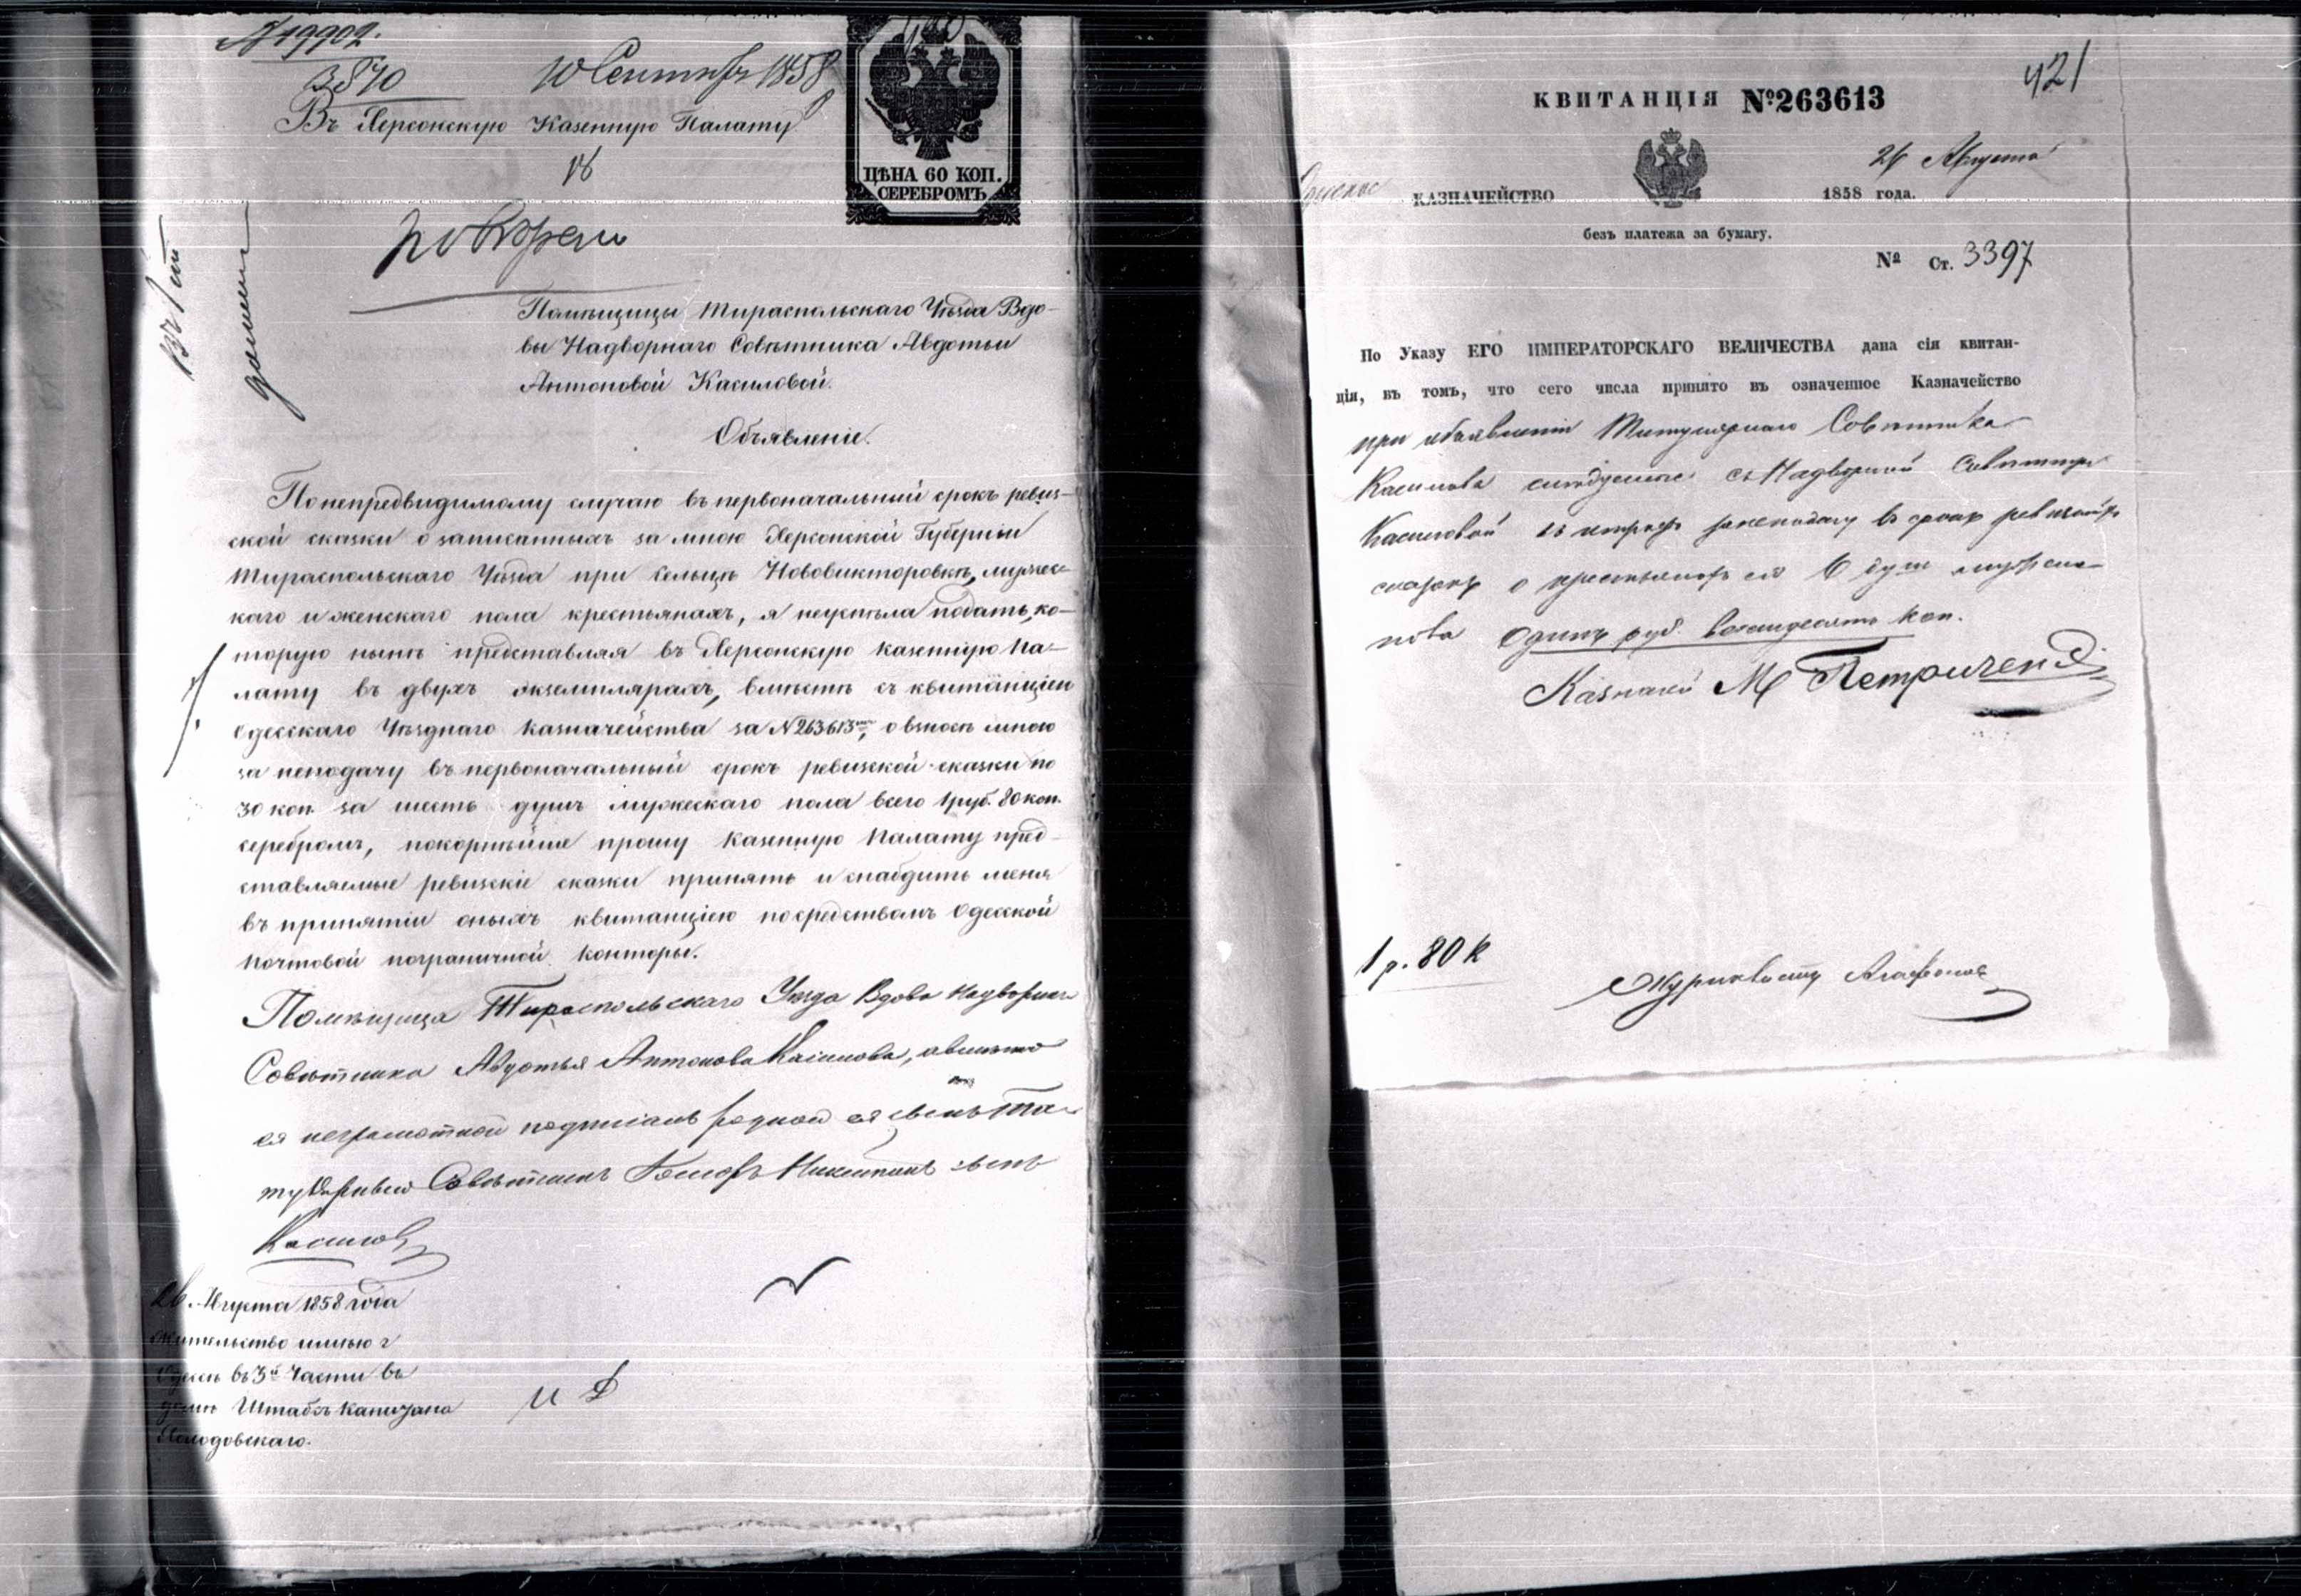 № 19902.
3840
10 Сентября 1858
Въ Херсонскую Казенную Палату
ЦѢНА 60 КОП.
СЕРЕБРОМЪ
Помѣщицы Тираспольскаго Уѣзда Вдо-
вы Надворнаго Совѣтника Авдотьи
Антоновой Касиловой.
Объявленіе.
По непредвидимому случаю въ первоначальный срокъ ревиз-
ской сказки о записанныхъ за мною Херсонской Губерніи
Тираспольскаго Уѣзда при сельцѣ Нововикторовкѣ, мужес-
каго и женскаго пола крестьянахъ, я неуспѣла подать, ко-
торую нынѣ представляя въ Херсонскую казенную Па-
лату въ двухъ экземплярахъ, вмѣстѣ съ квитанціею
Одесскаго Уѣзднаго Казначейства за № 263613, о взносѣ мною
за неподачу въ первоначальный срокъ ревизской сказки по
30 коп за шесть душъ мужескаго пола всего 1 руб. 80 коп.
серебромъ, покорнѣйше прошу Казенную Палату пред-
ставляемые ревизскіе сказки принять и снабдить меня
въ принятіи оныхъ квитанціею посредствомъ Одесской
почтовой пограничной конторы.
Помѣщица Тираспольскаго Уѣзда Вдова Надворнаго
Совѣтника Авдотья Антонова Касилова, а вмѣсто
ея неграмотной подписалъ родной ея сынъ Ти-
тулярный Совѣтникъ Іосифъ Никитинъ сынъ
Касиловъ
26. Августа 1858 года
жительство имѣю г
Одессѣ въ 3й Части въ
домѣ Штабсъ Капитана
Холодовскаго.
421
КВИТАНЦІЯ №263613
24 Августа
КАЗНАЧЕЙСТВО 1858 года.
безъ платежа за бумагу.
№ Ст. 3397
По Указу ЕГО ИМПЕРАТОРСКАГО ВЕЛИЧЕСТВА дана сія квитан-
ція, въ томъ, что сего числа принято въ означенное Казначейство
при объявленіи Титулярнаго Совѣтника
Касилова слѣдуемые съ Надворной Совѣтницы
Касиловой въ штрафъ за неподачу въ срокъ ревизскихъ
сказокъ о крестьянахъ ея 6 душ мужеска-
пола Одинъ руб. восемдесятъ коп.
Казначей М Петриченко
1 р. 80 к
Журналистъ Агафонов